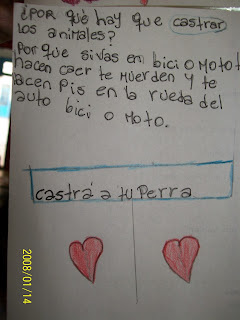 ¿POR qué hay que castrar
los animales?
Por que sivas en bici o Moto t
hacen caer te Muerden y te
acen Pis en la rueda del
auto bici o Moto.
castrá a tu Perra
2008/01/14